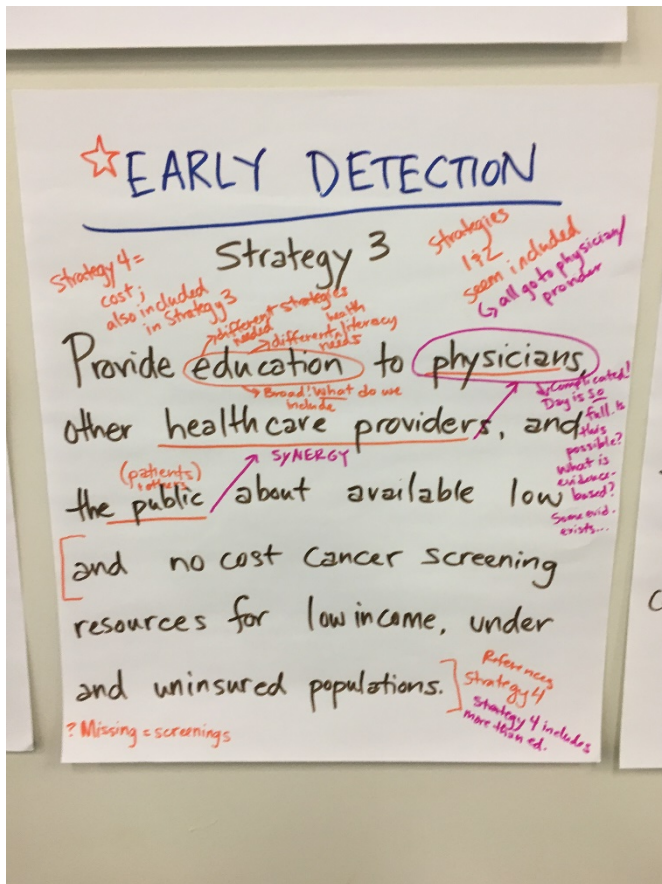 EARLY DETECTION
Strategy 3
Strategy 4 =
cost;
also included
in Strategy 3
Strategies
1 & 2
seem included
↳ all go to physician/
provider
different strategies
needed
different health literacy
needs
Provide education to physicians,
Broad! What do we
include
Complicated!
Day is so
full. Is
this
possible?
What is
evidence-
based?
Some evid.
exists...
other healthcare providers, and
SYNERGY
(patients)
+ others
the public about available low
and no cost cancer screening
resources for low income, under
and uninsured populations.
References
Strategy 4
Strategy 4 includes
more than ed.
? Missing = screenings